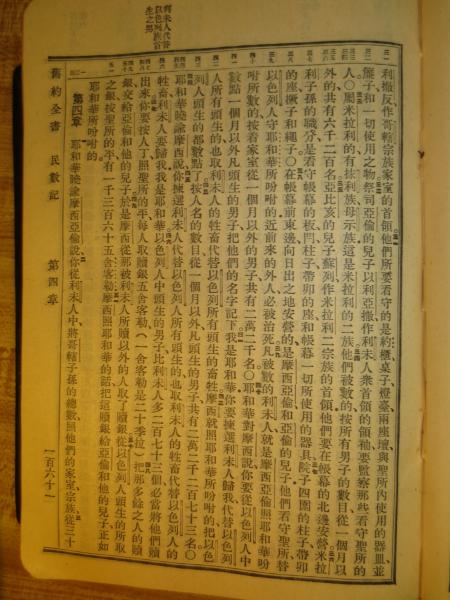 利未人代替
以色列族首
生之男
利撒反作哥轄宗族家室的首領他們所要看守的是約櫃桌子燈臺兩座壇與聖所內使用的器皿並
簾子和一切使用之物祭司亞倫的兒子以利亞撒作利未人衆首領的領袖要監察那些看守聖所的
人〇屬米拉利的有抹利族母示族這是米拉利的二族他們被數的按所有男子的數目從一個月以
外的共有六千二百名亞比亥的兒子蘇列作米拉利二宗族的首領他們要在帳幕的北邊安營米拉
利子孫的職分是看守帳幕的板閂柱子帶卯的座和帳幕一切所使用的器具院子四圍的柱子帶卯
的座橛子和繩子〇在帳幕前東邊向日出之地安營的是摩西亞倫和亞倫的兒子他們看守聖所替
以色列人守耶和華所吩咐的近前來的外人必被治死凡被數的利未人就是摩西亞倫照耶和華吩
咐所數的按着家室從一個月以外的男子共有二萬二千名〇耶和華對摩西說你要從以色列人中
數點一個月以外凡頭生的男子把他們的名字記下我是耶和華你要揀選利未人歸我代替以色列
人所有頭生的也取利未人的牲畜代替以色列所有頭生的牲畜摩西就照耶和華所吩咐的把以色
列人頭生的都數點了按人名的數目從一個月以外凡頭生的男子共有二萬二千二百七十三名〇
耶和華曉諭摩西說你揀選利未人代替以色列人所有頭生的也取利未人的牲畜代替以色列人的
牲畜利未人要歸我我是耶和華以色列人中頭生的男子比利未人多二百七十三個必當將他們贖
出來你要按人丁照聖所的平每人取贖銀五舍客勒(一舍客勒是二十季拉)把那多餘之人的贖
銀交給亞倫和他的兒子於是摩西從那被利未人所贖以外的人取了贖銀從以色列人頭生的所取
之銀按聖所的平有一千三百六十五舍客勒摩西照耶和華的話把這贖銀給亞倫和他的兒子正如
耶和華所吩咐的
第四章 耶和華曉諭摩西亞倫說你從利未人中將哥轄子孫的總數照他們的家室宗族從三十
舊約全書 民數記 第四章 一百六十一